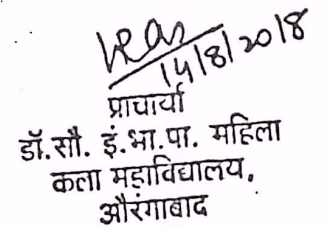 14/8/2018
प्राचार्या
डॉ.सौ. इं.भा.पा. महिला
कला महाविद्यालय,
औरंगाबाद